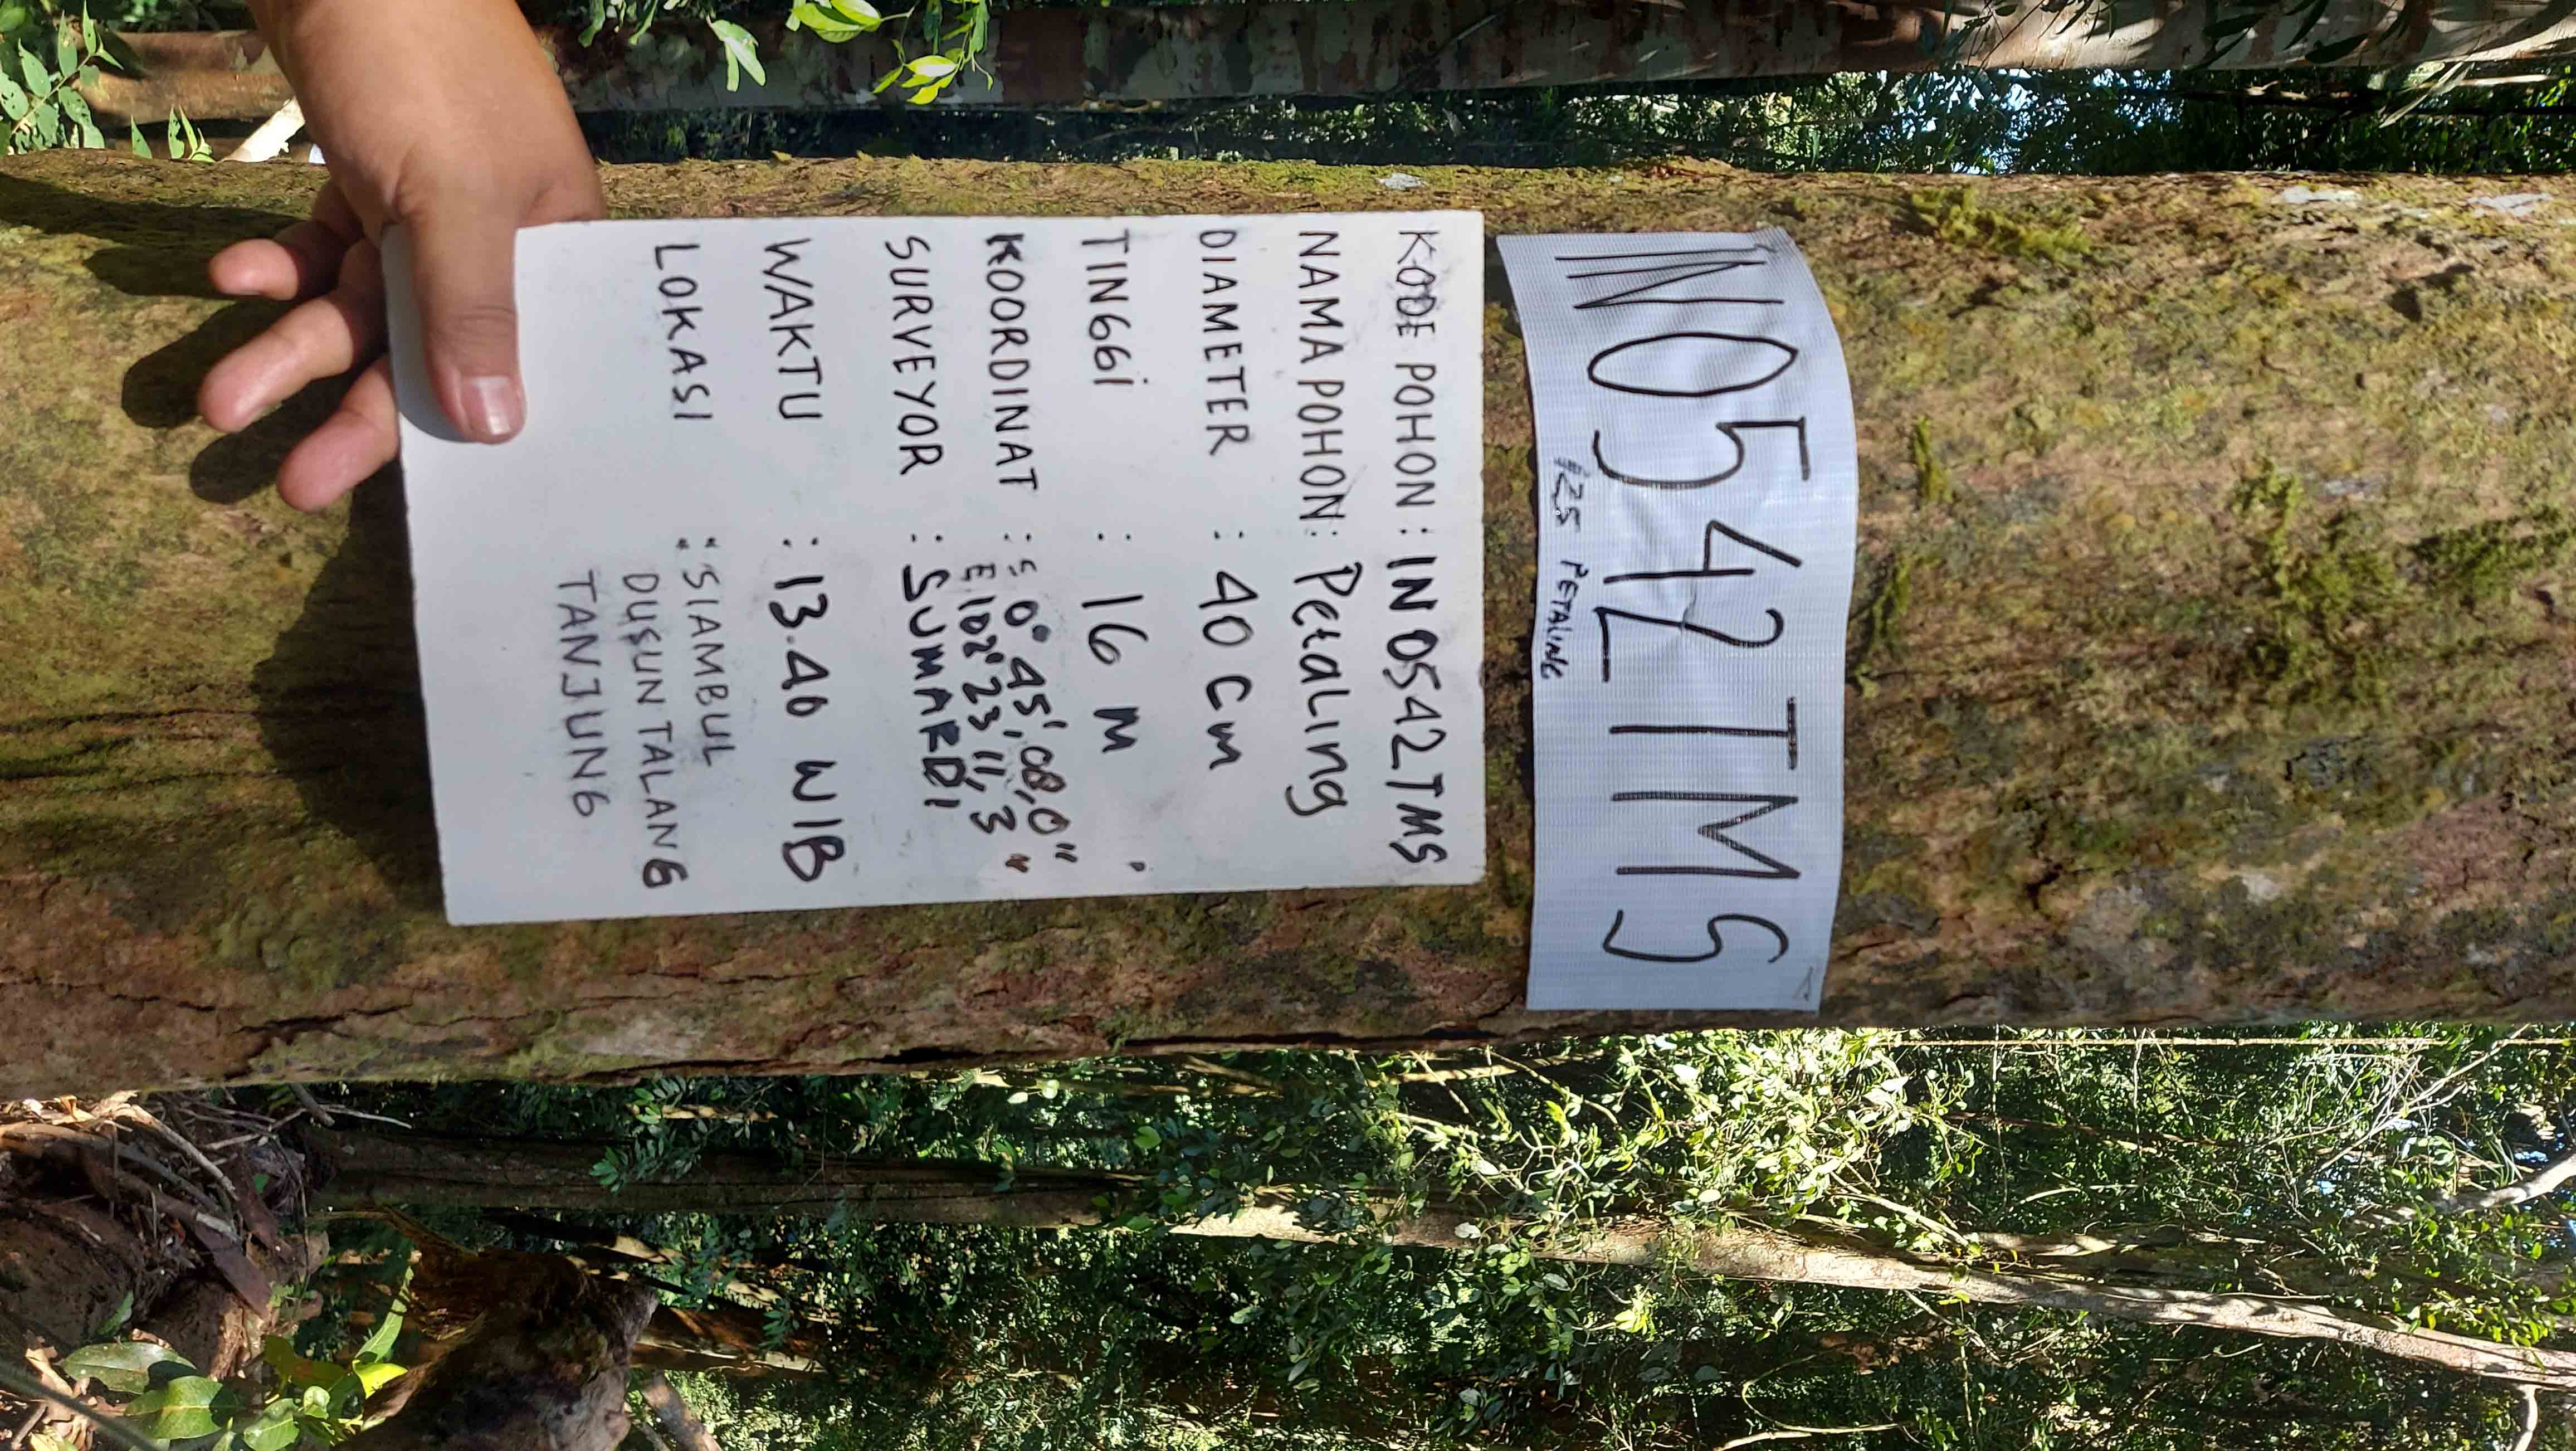 IN0542TMS
125 PETALING
KODE POHON : IN0542TMS
NAMA POHON : Petaling
DIAMETER : 40 cm
TINGGi : 16 m
KOORDINAT : S 0° 45', 08,0"
E 102° 23' 11,3"
SURVEYOR : SUMARDI
WAKTU : 13.40 WIB
LOKASI : SIAMBUL
DUSUN TALANG
TANJUNG